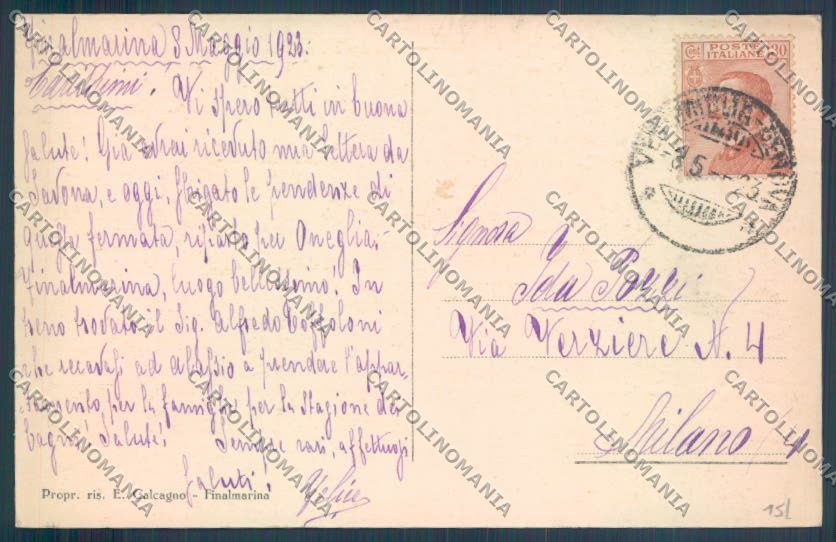 Finalmarina 8 Maggio 1923.
Carissimi. Vi spero tutti in buona
salute! Già avrai ricevuto mia lettera da
Savona, e oggi, sbrigato le pendenze di
questa fermata, riparto per Oneglia,-
Finalmarina, luogo bellissimo! In
treno trovato il Sig. Alfredo
che recavasi ad Alassio a prendere l'appar-
tamento per la famiglia per la stagione dei
bagni! Salute! Tempo affettuosi
saluti!
Felice
Propr. ris. E. Calcagno - Finalmarina
POSTE
ITALIANE
30
GENOVA
8.5.23
Signora
Ida Pozzi
Via Verziere N. 4
Milano/4
15/
CARTOLINOMANIA